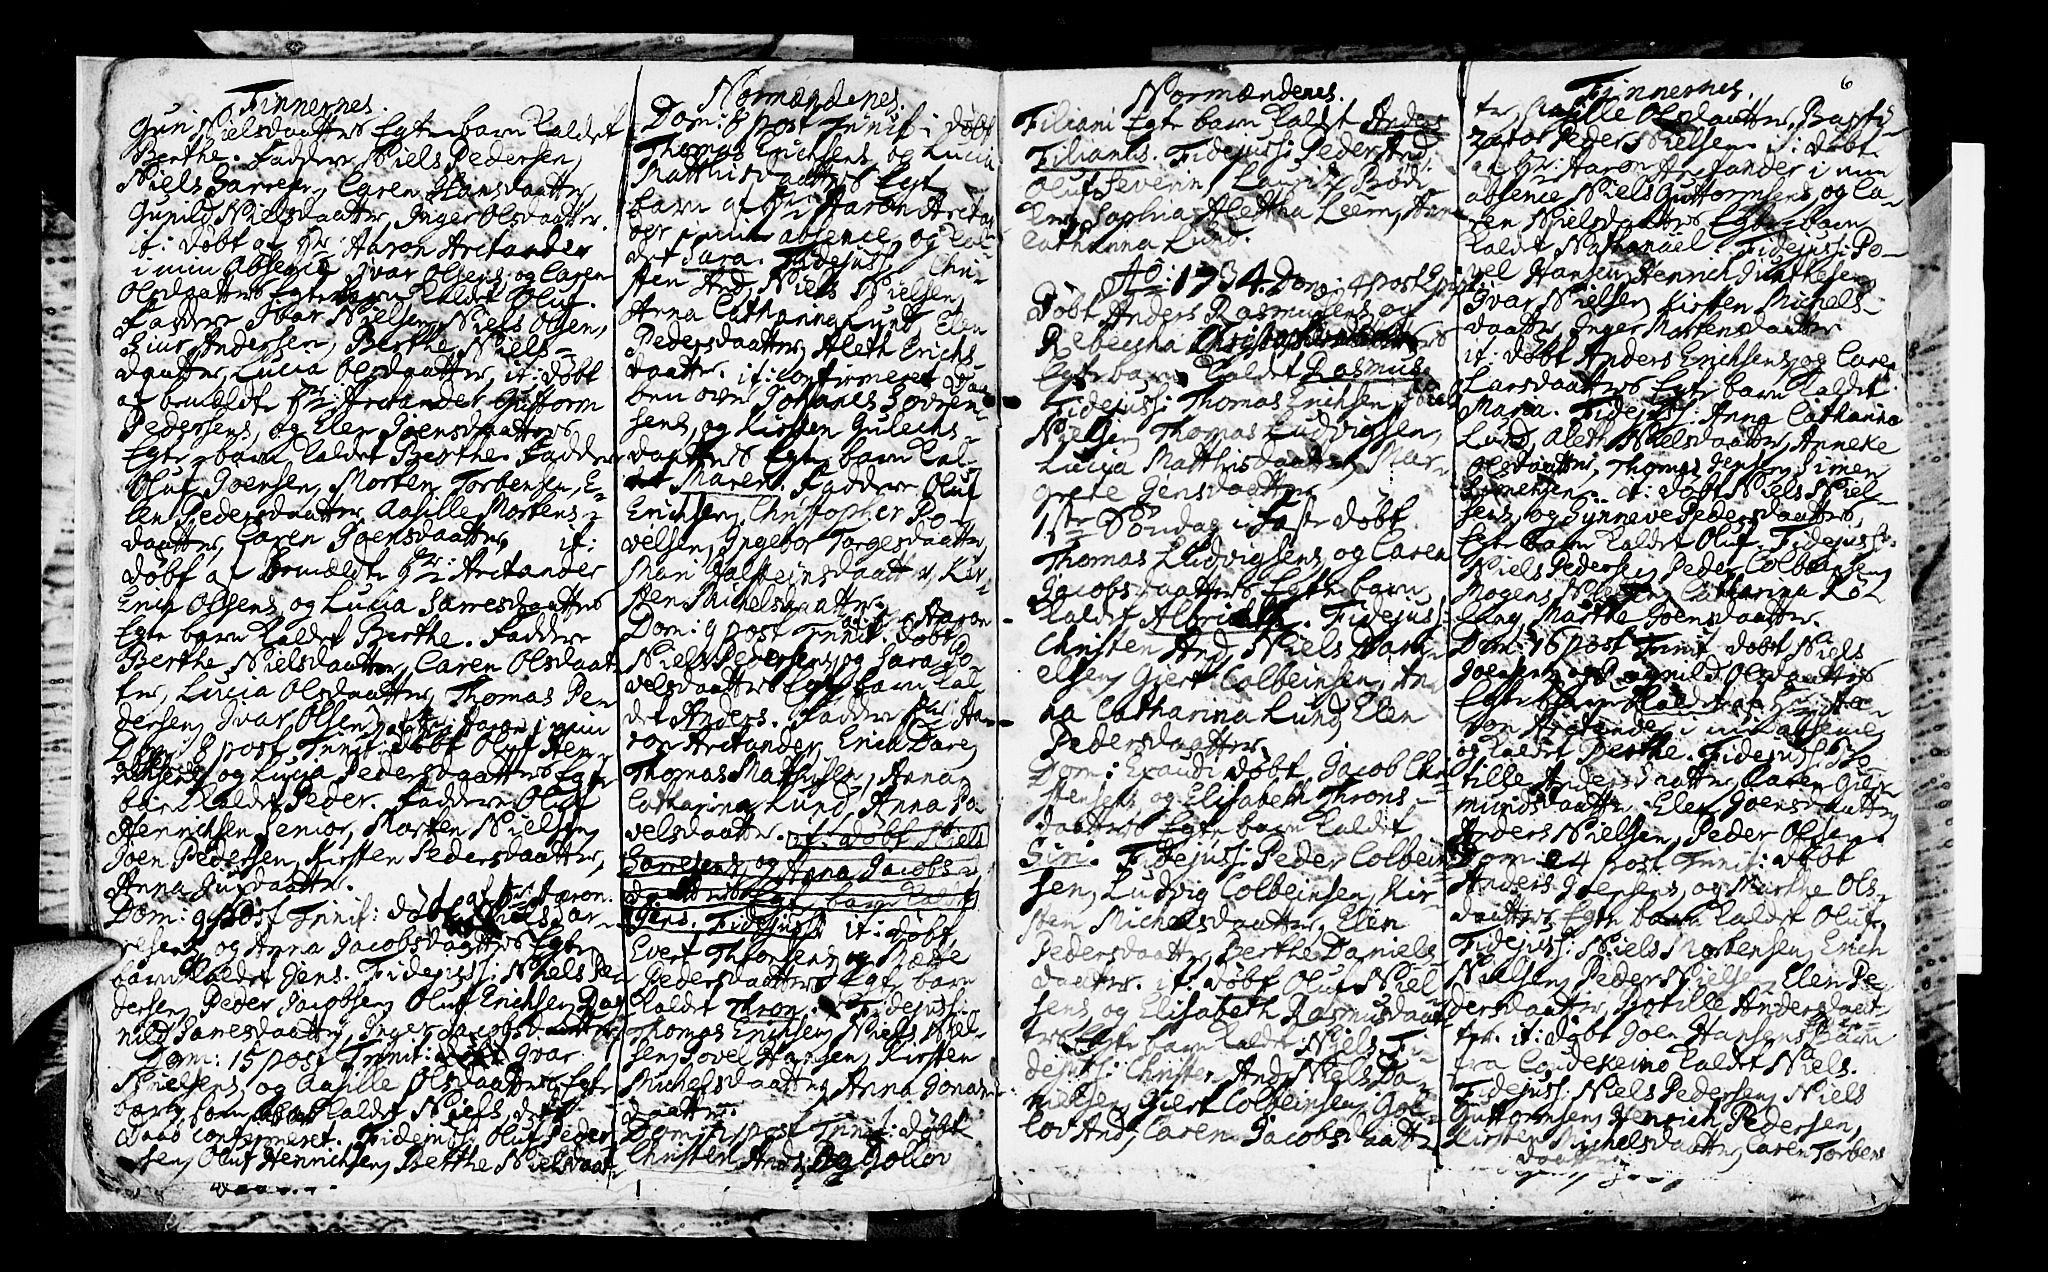 Finnernes.
Gun: Nielsdaatters Egte barn kaldet
Berthe. Faddere Niels Pedersen,
Niels Sarresen, Caren Hansdaatter,
Gunild Nielsdaatter, Inger Olsdaatter.
it: døbt af Hr: Aaron Arctander
i min Absence Ivar Olsens, og Caren
Olsdaatters Egte barn kaldet Oluf.
Faddere Ivar Nielsen, Niels Olsen,
Siur Andersen, Berthe Niels-
daatter, Lucia Olsdaatter, it: døbt
af bemeldte Hr: Arctander Guttorm
Pedersens, og Elen Joensdaatters
Egte barn kaldet Berthe. Faddere
Oluf Joensen, Morten Torbensen, E-
len Pedersdaatter, Aasille Mortens-
daatter, Caren Joensdaatter, it:
døbt af bemældte Hr: Arctander
Erich Olsens, og Lucia Sarresdaatters
Egte barn kaldet Berthe. Faddere
Berthe Nielsdaatter, Caren Olsdaat-
ter, Lucia Olsdaatter, Thomas Pe-
dersen, Ivar Olsen, af Hr: Aaron i min
Dom: 8 post Trinit: døbt Oluf Hen-
absence
richsens, og Lucia Pedersdaatters Egte
barn kaldet Peder. Faddere Oluf
Henrichsen Senior, Morten Nielsen,
Joen Pedersen, Kirsten Pedersdaatter,
Anna Siursdaatter.
Dom: 9 post Trinit: døbt af Hr: Aaron Niels Sar-
resens, og Anna Jacobsdaatters Egte
barn kaldet Jens. Fidejuss: Niels Pe-
dersen, Peder Jacobsen, Oluf Erichsen, Rag-
nild Sanesdaatter, Inger Jacobsdaatter
Dom: 15 post Trinit: døbt Ivar
Nielsens, og Aasille Olsdaatters Egte
barn, som kaldet Niels, dets
daab confirmeret. Fidejuss: Oluf Peder-
sen, Oluf Henrichsen, Berthe Nielsdaat-
Normændenes.
Dom: 8 post Trinit: døbt
Thomas Erichsens, og Lucia
Matthisdaatters Egte
barn af Hr: Aaron Arctan-
der i min absence, og kal-
det Sara. Fidejuss: Chri-
sten And, Niels Nielsen,
Anna Catharina Lund, Elen
Pedersdaatter, Aleth Erichs-
daatter. it: confirmeret daa-
ben over Johanes Sovren-
sens, og Kirsten Gulechs-
daatters Egte barn kal-
det Maren. Faddere Oluf
Erichsen, Christopher Po-
velsen, Ingebor Torgesdaatter,
Mari Halsteinsdaatter, Kir-
sten Michelsdaatter.
Dom: 9 post Trinit: døbt af Hr: Aaron
Niels Pedersens, og Sara Po-
velsdaatters Egte barn kal-
det Anders. Faddere Hr: Aa-
ron Arctander, Erica Dare,
Thomas Mathisen, Anna
Catharina Lund, Anna Po-
velsdaatter. it: døbt Niels
Sarresens, og Anna Jacobs-
daatters Egte barn kaldet
Jens. Fidejuss: it: døbt
Evert Thronsens, og Mætte
Pedersdaatters Egte barn
kaldet Thron. Fidejuss:
Thomas Erichsen, Niels Niel-
sen, Povel Hansen, Kirsten
Michelsdaatter, Anna Jonas-
daatter.
Dom: post Trinit: døbt
Christen Ands, og Gollov
Normændenes.
Filiani Egte barn kaldet Anders
Filianus. Fidejuss: Peder And,
Oluf Severin, Lauritz Brod-
Sophia Aletha Leem, Ann
Catharina Lund.
Ao: 1734. Dom: 4 post Epiph
Døbt Anders Rasmusens, og
Rebecha Christophersdaatters
Egte barn kaldet Rasmus.
Fidejuss: Thomas Erichsen,
Nielsen, Thomas Ludvigsen,
Lucia Matthisdaatter, Mar-
grete Jensdaatter.
1ste Søndag i Faste døbt
Thomas Ludvigsens, og Caren
Jacobsdaatters Egte barn
kaldet Albricht. Fidejuss:
Christen And, Niels Dani-
elsen, Giert Colbeinsen, An-
na Catharina Lund, Elen
Pedersdaatter.
Dom: Exaudi døbt Jacob Chri-
stensens, og Elisabeth Throns-
daatters Egte barn kaldet
Siri. Fidejuss: Peder Colbein-
sen, Ludvig Colbeinsen, Kir-
sten Michelsdaatter, Elen
Pedersdaatter, Berthe Daniels
daatter. it: døbt Oluf Niel-
sens, og Elisabeth Rasmusdaat-
ters Egte barn kaldet Niels. Fi-
dejuss: Christen And, Niels Da-
nielsen, Giert Colbeinsen, Gol-
lov And, Caren Jacobsdaatter
6
Finnernes.
ter, Aasille Olsdaatter, Bapti-
zator Peder Nielsen. it: døbt
af Hr: Aaron Arctander i min
absence Niels Guttormsens, og Ca-
ren Nielsdaatters Egte barn
kaldet Nathanael. Fidejuss: Po-
vel Hansen, Henrich Jonthesen,
Ivar Nielsen, Kirsten Michels-
daatter, Inger Mortensdaatter
it: døbt Anders Erichsens, og Caren
Larsdaatters Egte barn kaldet
Maria. Fidejuss: Anna Catharina
Lund, Aleth Nielsdaatter, Anneke
Olsdaatter, Thomas Jensen, Simen
Simensen. it: døbt Niels Niel-
sens, og Synneve Pedersdaatters,
Egte barn kaldet Oluf. Fidejuss:
Niels Pedersen, Peder Colbensen,
Mogens Nielsen, Catharina Kol
lang, Marthe Joensdaatter.
Dom: 16 post Trinit: døbt Niels
Joensens, og Ragnild Olsdaatters
Egte barn kaldet af Hr: Aa-
ron Arctander i min absence,
og kaldet Berthe. Fidejuss: Bo-
tille Andersdaatter, Caren Guld-
mundsdaatter, Elen Joensdaatter,
Anders Nielsen, Peder Olsen.
Dom: 24 post Trinit: døbt
Anders Joensens, og Marthe Ols-
daatters Egte barn kaldet Oluf.
Fidejuss: Niels Mortensen, Erich
Nielsen, Peder Nielsen, Elen Pe-
dersdaatter, Botille Andersdaat-
ter. it: døbt Joen Hansens barn
fra Coudekeino kaldet Niels.
Fidejuss: Niels Pedersen, Niels
Guttormsen, Henrich Pedersen,
Kirsten Michelsdaatter, Caren Torbens
daatter